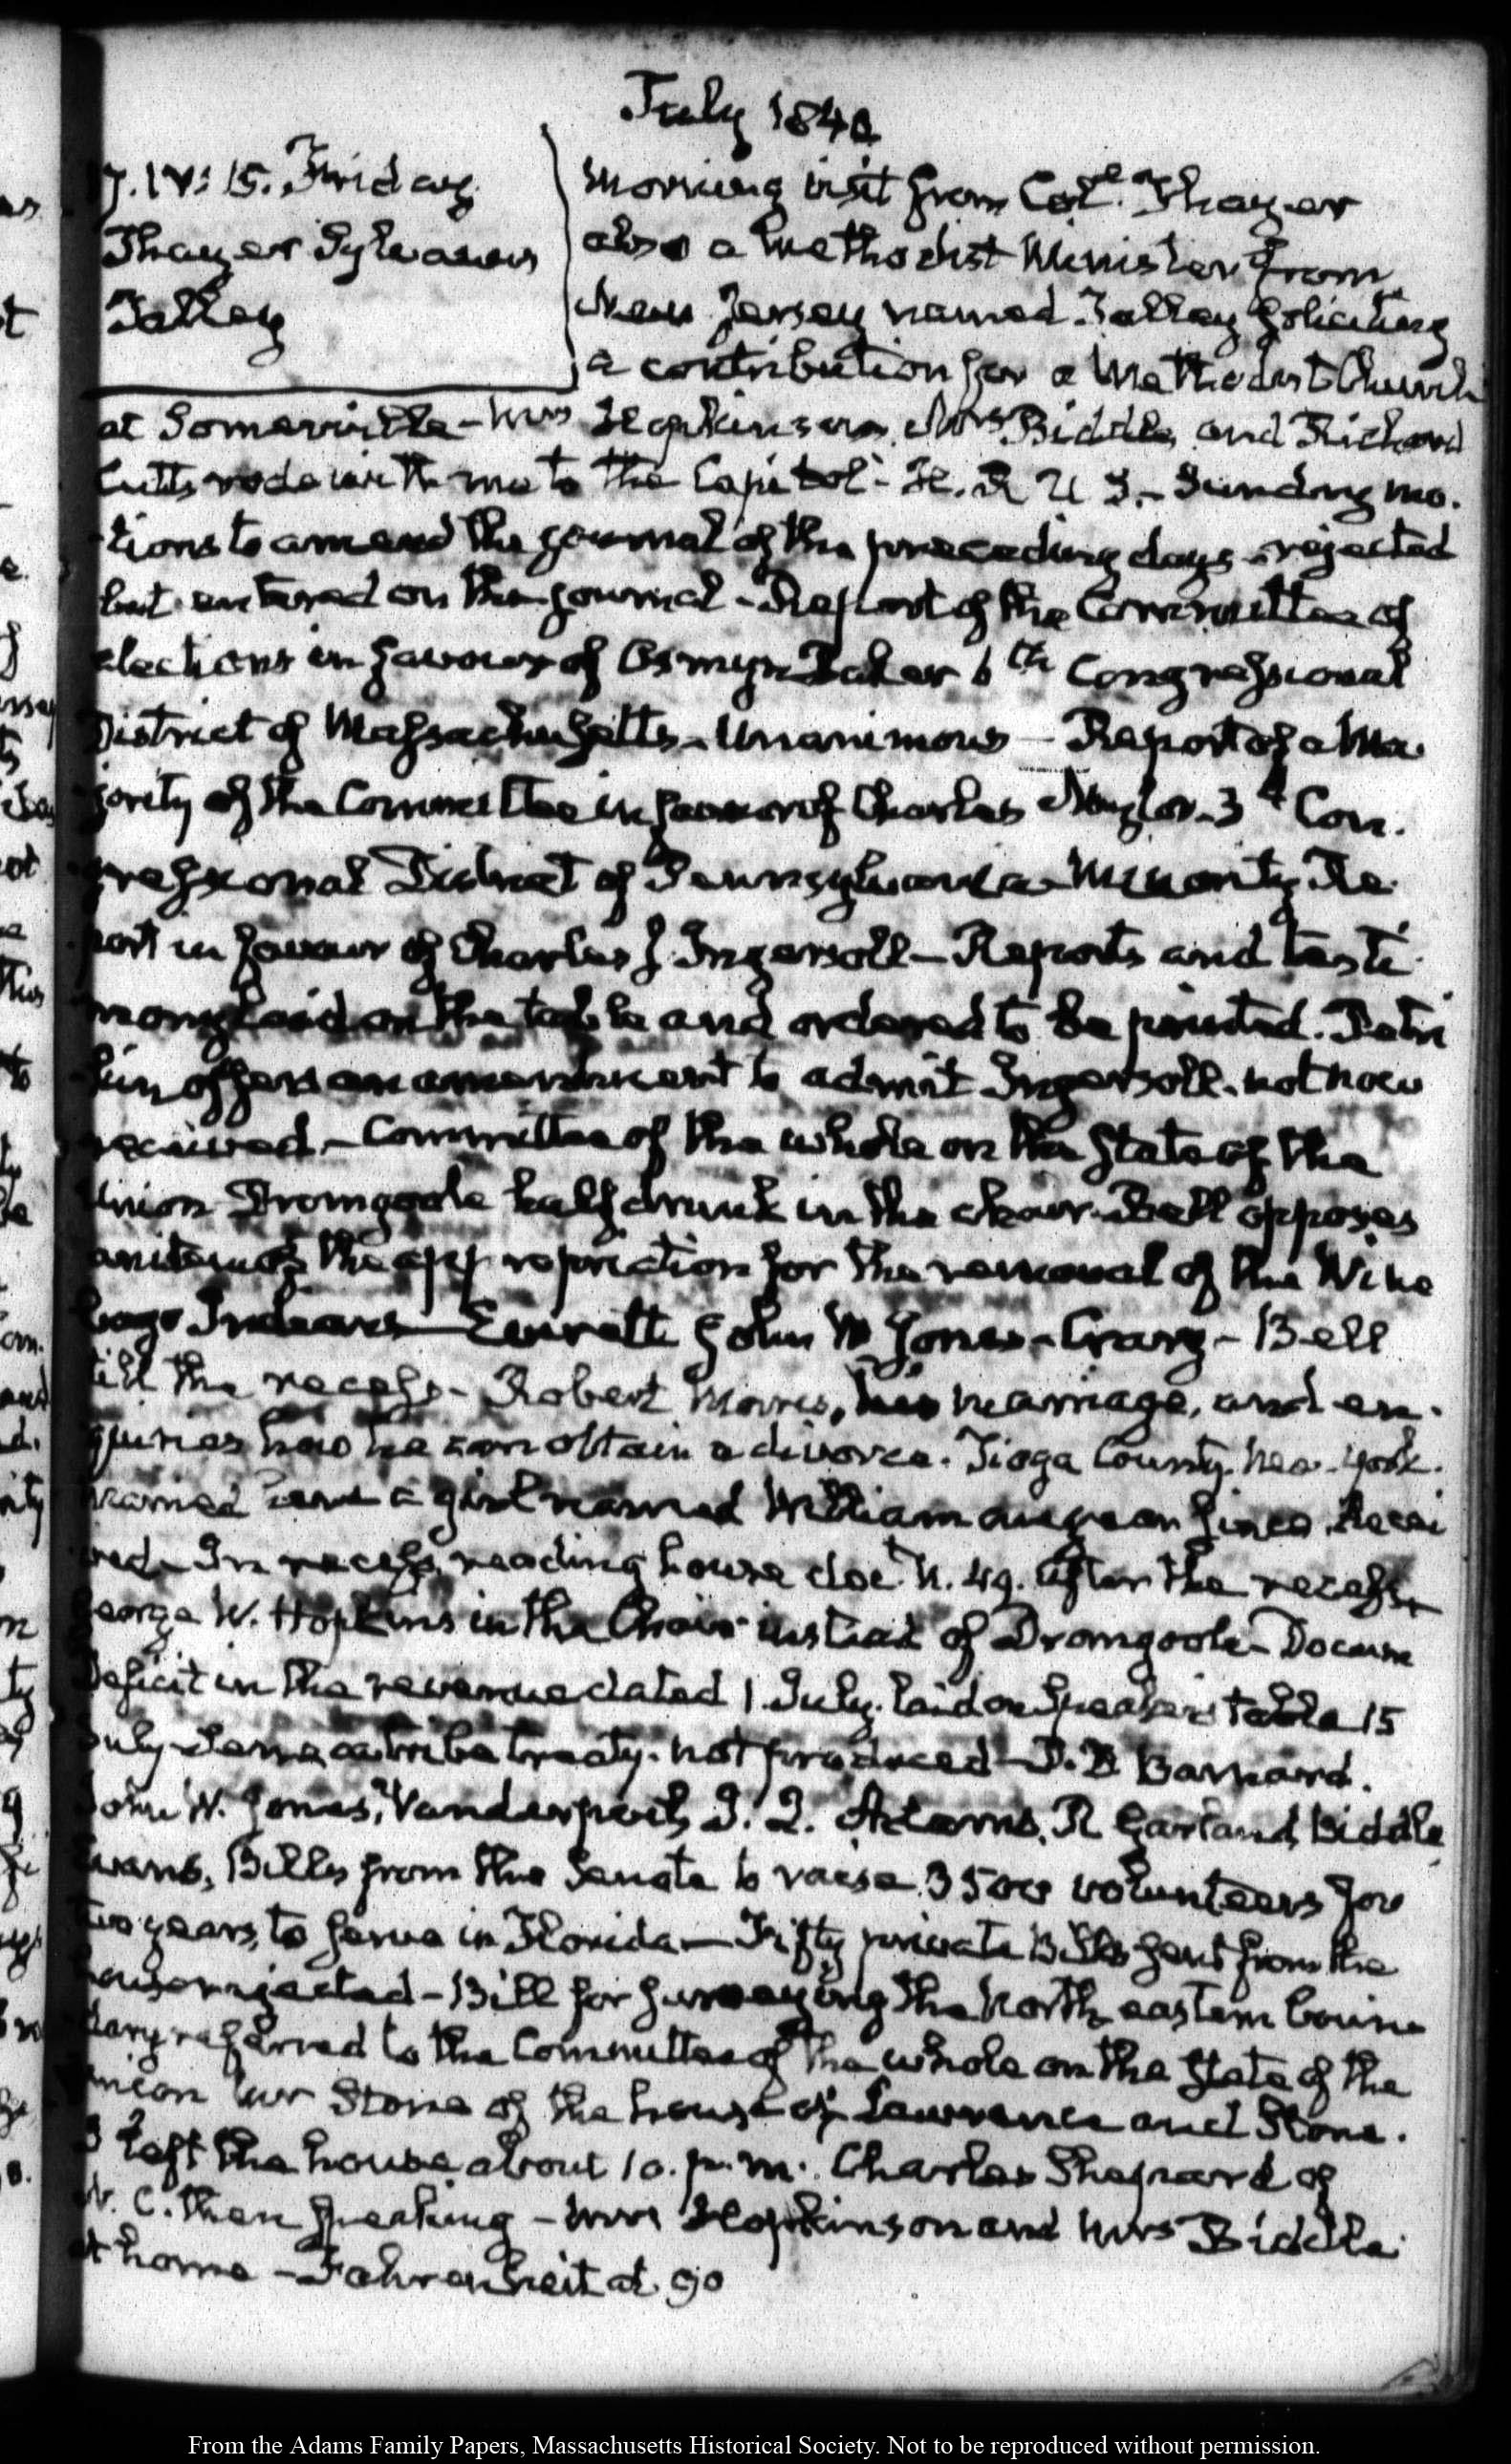 July 1840
17. IV: 15. Friday
Thayer Sylvanus
Talley
Morning visit from Coll. Thayer
also a Methodist Minister from
New Jersey named Talley soliciting
a contribution for a Methodist Church
at Somerville - Mrs Hopkinson, Mrs Biddle, and Richard
Cutts rode with me to the Capitol - H. R U S. - Sundry mo-
tions to amend the journal of the preceding days - rejected
but entered on the journal - Report of the Committee of
elections in favour of Osmyn Baker 6th Congressional
District of Massachusetts - Unanimous - Report of a Ma
jority of the Committee in favour of Charles Naylor - 3d Con-
gressional District of Pennsylvania - Minority Re
port in favour of Charles J. Ingersoll - Reports and testi
mony laid on the table and ordered to be printed. Petri
kin offers an amendment to admit Ingersoll - not now
received. - Committee of the whole on the State of the
Union Dromgoole half drunk in the chair - Bell opposes
an item of the appropriation for the removal of the Wine
bago Indians - Everett John W Jones - Crary - Bell
till the recess - Robert Morris, his marriage, and en-
quiries how he can obtain a divorce. Tioga County. New-York.
married a girl named William a year since
In recess, reading house doct. N. 49. After the recess,
George W. Hopkins in the Chair instead of Dromgoole - Docum
Deficit in the revenue dated 1 July. laid on Speaker's table 15
July - Seneca tribe treaty. not produced - D. D Barnard.
John W. Jones, Vanderpoel, J. Q. Adams, R Garland, Biddle
Evans, Bills from the Senate to raise 3500 volunteers for
two years, to serve in Florida - Fifty private Bills sent from the
house rejected - Bill for surveying the North eastern boun
dary referred to the Committee of the whole on the State of the
Union Mr Stone of the house of Lawrence and Stone.
I left the house about 10. p.m. Charles Shepard of
N. C. then speaking - Mrs Hopkinson and Mrs Biddle
at home - Fahrenheit at 90
From the Adams Family Papers, Massachusetts Historical Society. Not to be reproduced without permission.